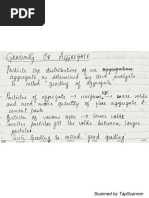 GRADING OF AGGREGATE
Particle size distribution of an aggregate
aggregate as determined by sieve analysis
is called grading of aggregate.
Particles of aggregate → uniform size → more voids
and need more quantity of fine aggregate &
cement paste
Particles of various sizes → lower voids
smaller particles fill the voids between larger
particles
such grading is good grading
Scanned by TapScanner